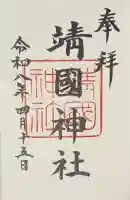 奉拝
靖國神社
令和八年四月十五日
靖国神社